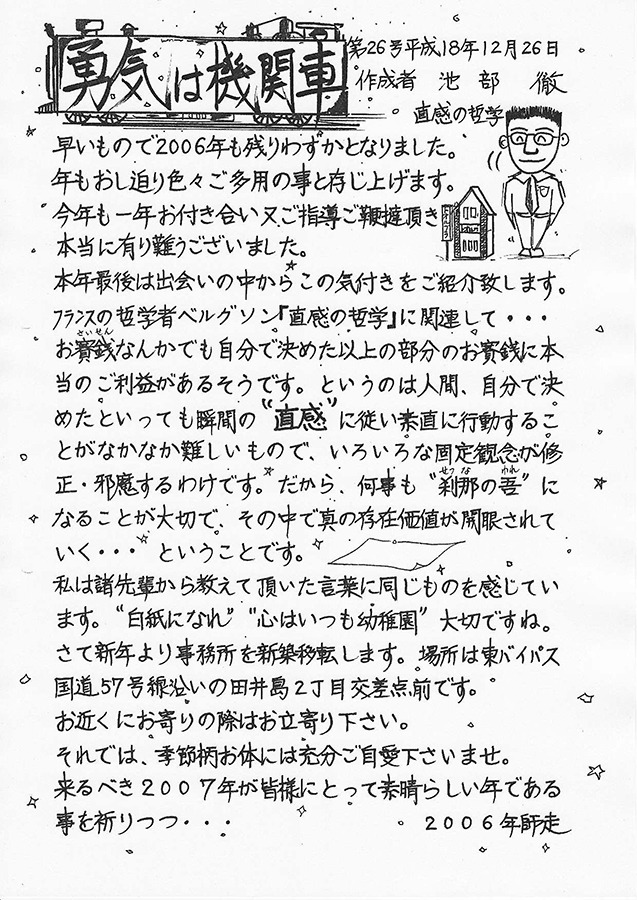 勇気は機関車
第26号平成18年12月26日
作成者 池部 徹
直感の哲学
早いもので2006年も残りわずかとなりました。
年もおし迫り色々ご多用の事と存じ上げます。
今年も一年お付き合い又ご指導ご鞭撻頂き
本当に有り難うございました。
本年最後は出会いの中からこの気付きをご紹介致します。
フランスの哲学者ベルグソン『直感の哲学』に関連して・・・
さいせん
お賽銭なんかでも自分で決めた以上の部分のお賽銭に本
当のご利益があるそうです。というのは人間、自分で決
めたといっても瞬間の“直感”に従い素直に行動するこ
とがなかなか難しいもので、いろいろな固定観念が修
せつな われ
正・邪魔するわけです。だから、何事も“刹那の吾”に
なることが大切で、その中で真の存在価値が開眼されて
いく・・・ ということです。
私は諸先輩から教えて頂いた言葉に同じものを感じてい
ます。“白紙になれ”“心はいつも幼稚園” 大切ですね。
さて新年より事務所を新築移転します。場所は東バイパス
国道57号線沿いの田井島2丁目交差点前です。
お近くにお寄りの際はお立寄り下さい。
それでは、季節柄お体には充分ご自愛下さいませ。
来るべき2007年が皆様にとって素晴らしい年である
事を祈りつつ・・・ 2006年師走